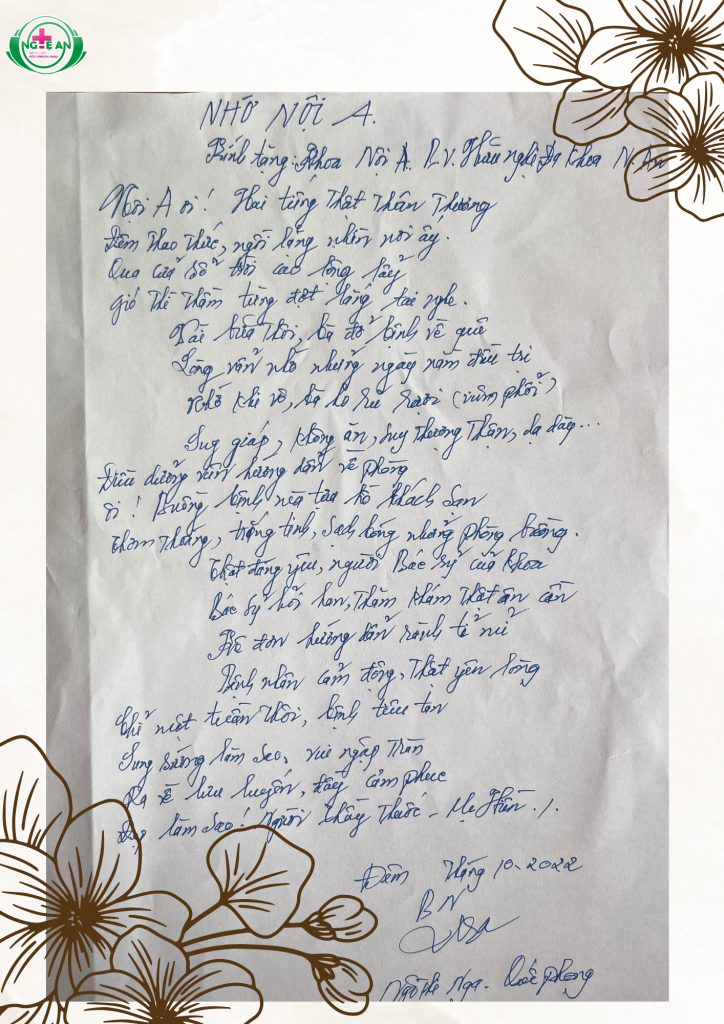 NGHỆ AN
NHỚ NỘI A.
Kính tặng: Khoa Nội A. B.V. Hữu nghị Đa khoa N. An
Nội A ơi! Hai tiếng thật thân thương
Đêm thao thức, ngồi lặng nhìn nơi ấy.
Qua cửa sổ trời cao lồng lẫy
Gió thì thầm từng đợt lắng tai nghe.
Vài bữa thôi, bà đỡ bệnh về quê
Lòng vẫn nhớ những ngày nằm điều trị
Nhớ khi vô, bà ho rũ rượi (viêm phổi)
Suy giáp, không ăn, suy thượng thận, dạ dày...
Điều dưỡng viên hướng dẫn về phòng
Ôi! Buồng bệnh mà tựa hồ khách sạn
Thơm thoáng, trắng tinh, sạch bóng những phòng buồng.
Thật đáng yêu, người Bác sỹ của khoa
Bác sỹ hỏi han, thăm khám thật ân cần
Kê đơn hướng dẫn rành tỉ mỉ
Bệnh nhân cảm động, thật yên lòng
Chỉ một tuần thôi, bệnh tiêu tan
Sung sướng làm sao, vui ngập tràn
Ra về lưu luyến, đầy cảm phục
Đẹp làm sao! Người thầy thuốc - Mẹ Hiền./.
Đêm tháng 10-2022
BN
Ngô Thị Nga - Quốc phòng